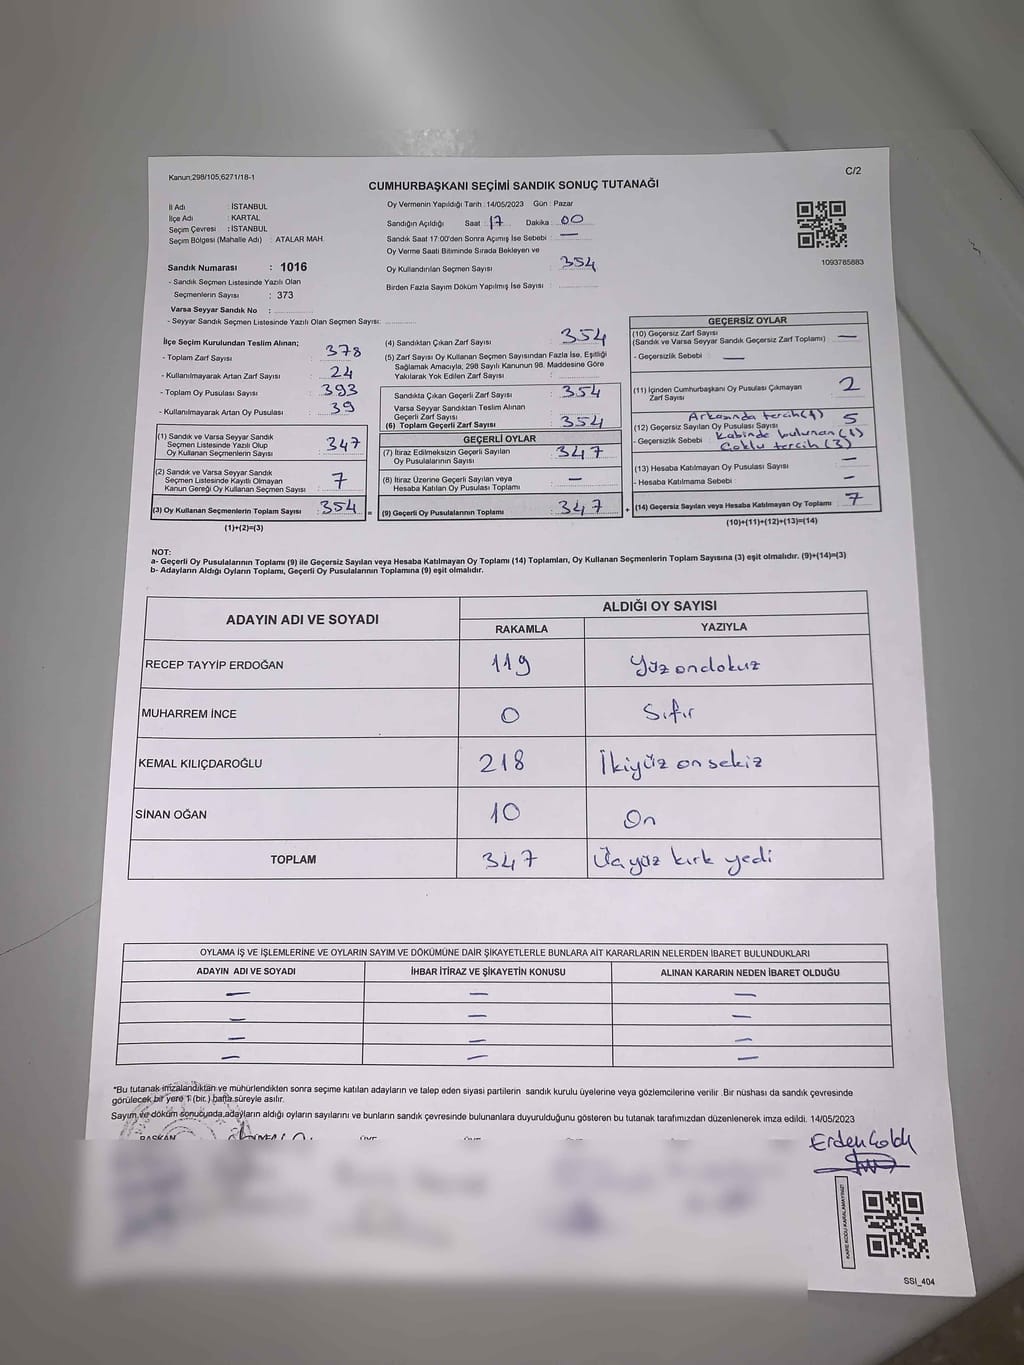 Kanun;298/105,6271/18-1
C/2
CUMHURBAŞKANI SEÇİMİ SANDIK SONUÇ TUTANAĞI
İl Adı : İSTANBUL
İlçe Adı : KARTAL
Seçim Çevresi : İSTANBUL
Seçim Bölgesi (Mahalle Adı) : ATALAR MAH.
Sandık Numarası : 1016
- Sandık Seçmen Listesinde Yazılı Olan
Seçmenlerin Sayısı : 373
Varsa Seyyar Sandık No :
- Seyyar Sandık Seçmen Listesinde Yazılı Olan Seçmen Sayısı:
Oy Vermenin Yapıldığı Tarih : 14/05/2023 Gün : Pazar
Sandığın Açıldığı Saat : 17 Dakika : 00
Sandık Saat 17:00'den Sonra Açımış İse Sebebi : —
Oy Verme Saati Bitiminde Sırada Bekleyen ve
Oy Kullandırılan Seçmen Sayısı : 354
Birden Fazla Sayım Döküm Yapılmış İse Sayısı :
1093785883
İlçe Seçim Kurulundan Teslim Alınan;
- Toplam Zarf Sayısı : 378
- Kullanılmayarak Artan Zarf Sayısı : 24
- Toplam Oy Pusulası Sayısı : 393
- Kullanılmayarak Artan Oy Pusulası : 39
(1) Sandık ve Varsa Seyyar Sandık
Seçmen Listesinde Yazılı Olup
Oy Kullanan Seçmenlerin Sayısı : 347
(2) Sandık ve Varsa Seyyar Sandık
Seçmen Listesinde Kayıtlı Olmayan
Kanun Gereği Oy Kullanan Seçmen Sayısı : 7
(3) Oy Kullanan Seçmenlerin Toplam Sayısı : 354 =
(1)+(2)=(3)
(4) Sandıktan Çıkan Zarf Sayısı : 354
(5) Zarf Sayısı Oy Kullanan Seçmen Sayısından Fazla İse, Eşitliği
Sağlamak Amacıyla, 298 Sayılı Kanunun 98. Maddesine Göre
Yakılarak Yok Edilen Zarf Sayısı :
Sandıkta Çıkan Geçerli Zarf Sayısı : 354
Varsa Seyyar Sandıktan Teslim Alınan
Geçerli Zarf Sayısı :
(6) Toplam Geçerli Zarf Sayısı : 354
GEÇERLİ OYLAR
(7) İtiraz Edilmeksizin Geçerli Sayılan
Oy Pusulalarının Sayısı : 347
(8) İtiraz Üzerine Geçerli Sayılan veya
Hesaba Katılan Oy Pusulası Toplamı : —
(9) Geçerli Oy Pusulalarının Toplamı : 347 +
GEÇERSİZ OYLAR
(10) Geçersiz Zarf Sayısı
(Sandık ve Varsa Seyyar Sandık Geçersiz Zarf Toplamı) : —
- Geçersizlik Sebebi : —
(11) İçinden Cumhurbaşkanı Oy Pusulası Çıkmayan
Zarf Sayısı : 2
Arkasında tercih(1)
(12) Geçersiz Sayılan Oy Pusulası Sayısı : 5
- Geçersizlik Sebebi : Kabinde bulunan (1)
Çoklu tercih (3)
(13) Hesaba Katılmayan Oy Pusulası Sayısı : —
- Hesaba Katılmama Sebebi : —
(14) Geçersiz Sayılan veya Hesaba Katılmayan Oy Toplamı : 7
(10)+(11)+(12)+(13)=(14)
NOT:
a- Geçerli Oy Pusulalarının Toplamı (9) ile Geçersiz Sayılan veya Hesaba Katılmayan Oy Toplamı (14) Toplamları, Oy Kullanan Seçmenlerin Toplam Sayısına (3) eşit olmalıdır. (9)+(14)=(3)
b- Adayların Aldığı Oyların Toplamı, Geçerli Oy Pusulalarının Toplamına (9) eşit olmalıdır.
ADAYIN ADI VE SOYADI ALDIĞI OY SAYISI
RAKAMLA YAZIYLA
RECEP TAYYİP ERDOĞAN 119 Yüz ondokuz
MUHARREM İNCE 0 Sıfır
KEMAL KILIÇDAROĞLU 218 İkiyüz onsekiz
SİNAN OĞAN 10 On
TOPLAM 347 Üçyüz kırk yedi
OYLAMA İŞ VE İŞLEMLERİNE VE OYLARIN SAYIM VE DÖKÜMÜNE DAİR ŞİKAYETLERLE BUNLARA AİT KARARLARIN NELERDEN İBARET BULUNDUKLARI
ADAYIN ADI VE SOYADI İHBAR İTİRAZ VE ŞİKAYETİN KONUSU ALINAN KARARIN NEDEN İBARET OLDUĞU
— — —
— — —
— — —
— — —
*Bu tutanak imzalandıktan ve mühürlendikten sonra seçime katılan adayların ve talep eden siyasi partilerin sandık kurulu üyelerine veya gözlemcilerine verilir .Bir nüshası da sandık çevresinde
görülecek bir yere 1 (bir ) hafta süreyle asılır.
Sayım ve döküm sonucunda,adayların aldığı oyların sayılarını ve bunların sandık çevresinde bulunanlara duyurulduğunu gösteren bu tutanak tarafımızdan düzenlenerek imza edildi. 14/05/2023
BAŞKAN
KARE KODU KARALAMAYINIZ!
SSİ_404